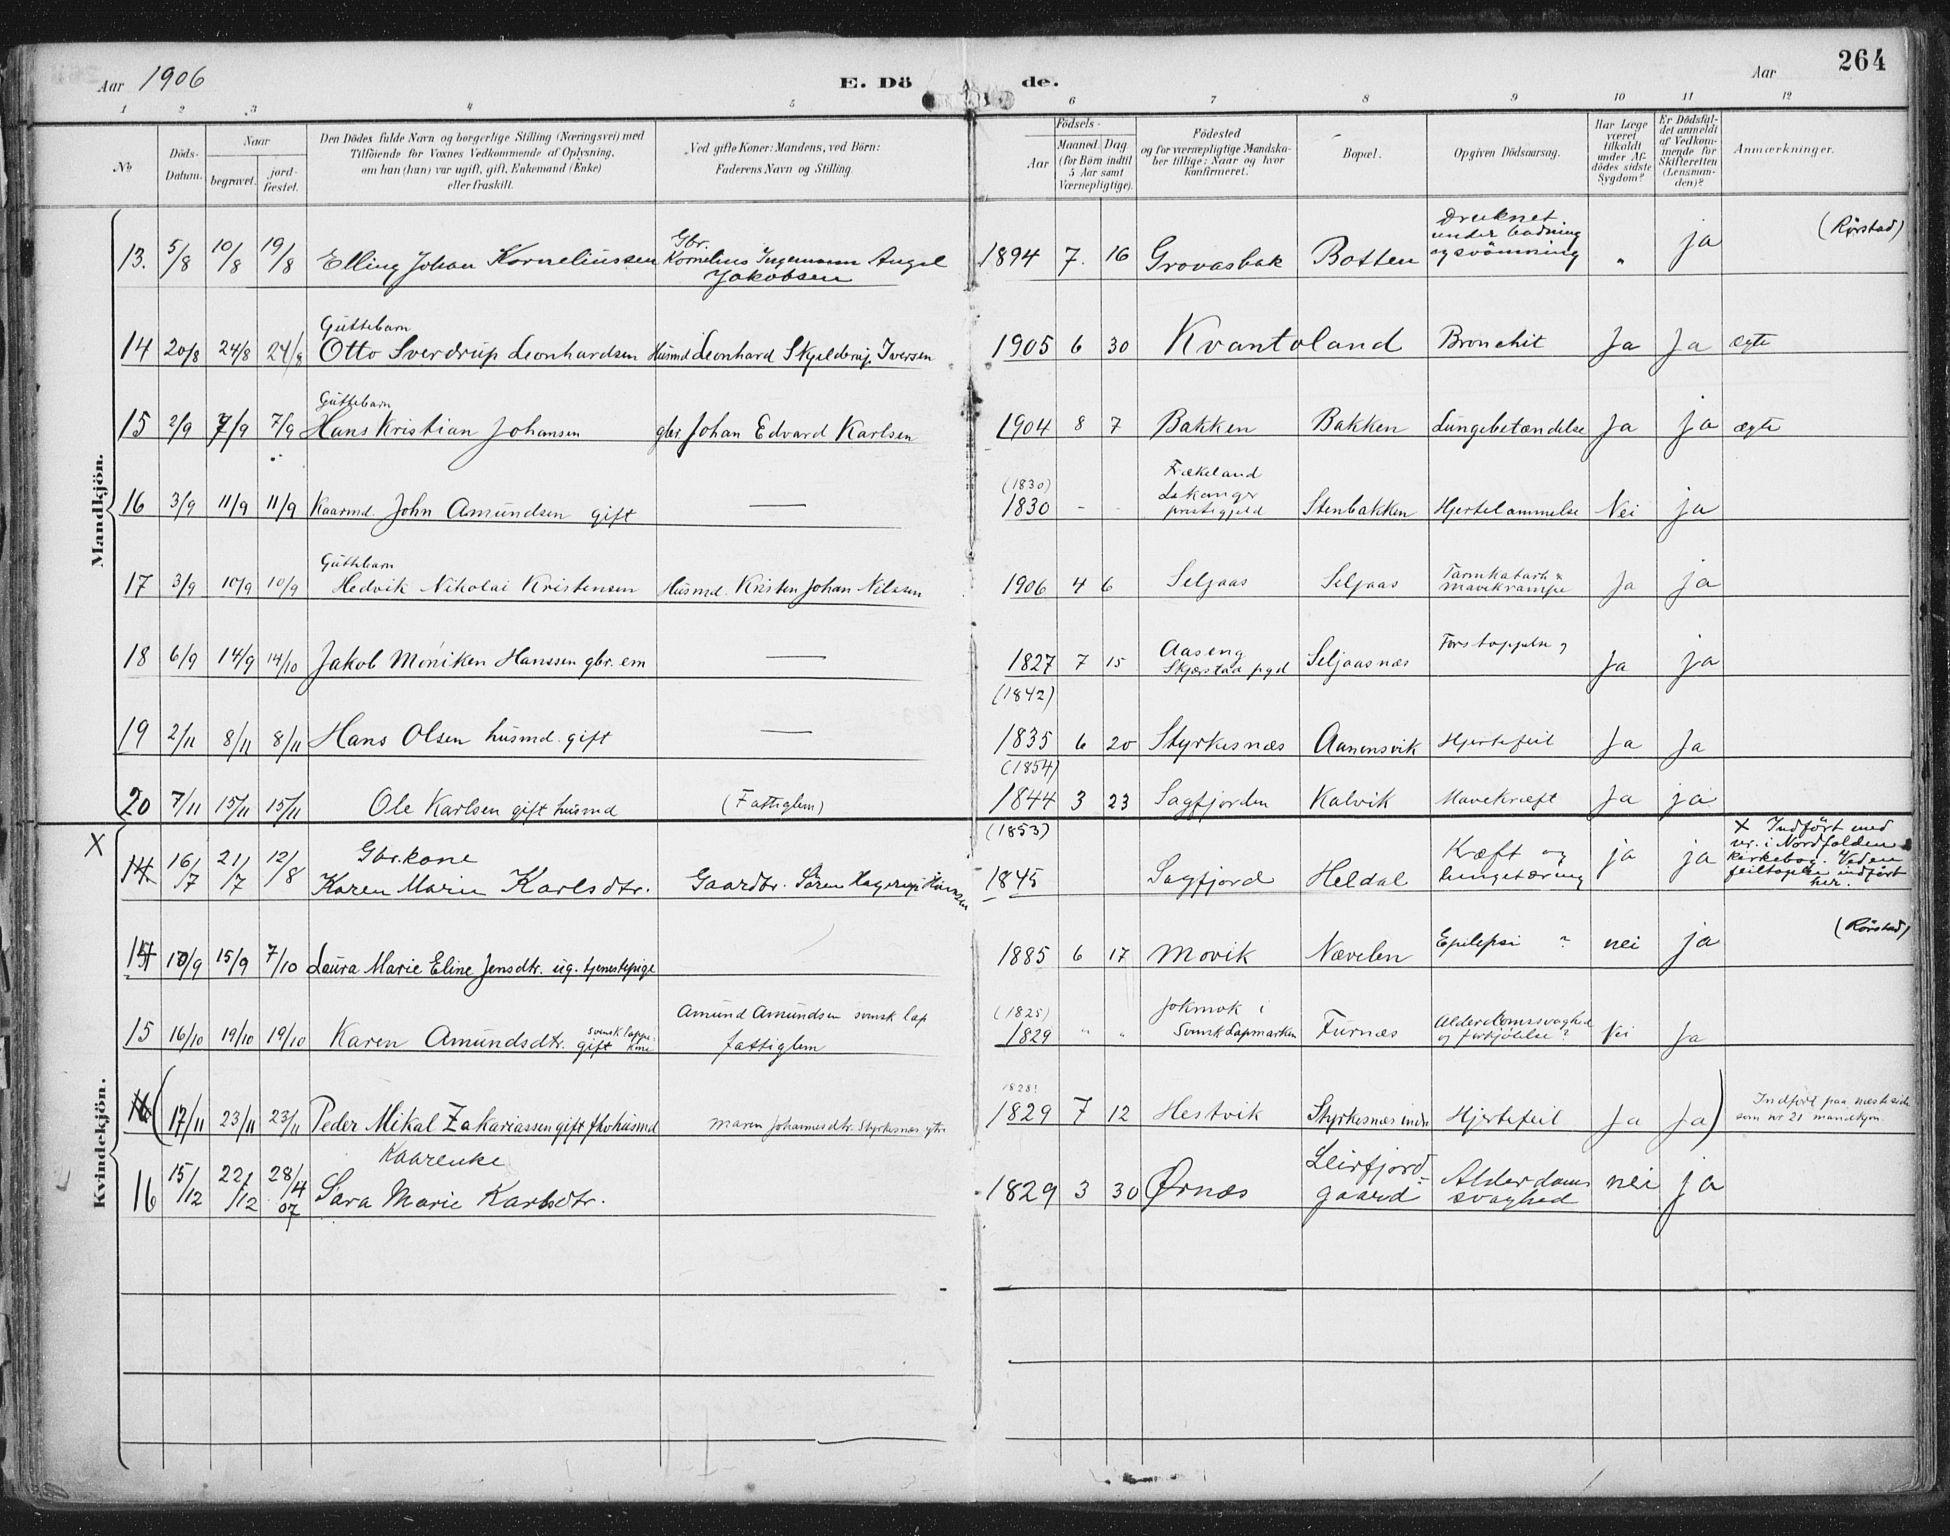 Aar 1906 E. Dö de. Aar 264
1 2 3 4 5 6 7 8 9 10 11 12
No
Döds-
Datum.
Naar
begravet.
jord-
fæstet.
Den Dödes fulde Navn og borgerlige Stilling (Næringsvei) med
Tilföiende for Voxnes Vedkommende af Oplysning,
om han (hun) var ugift, gift, Enkemand (Enke)
eller fraskilt.
Ved gifte Koner: Mandens, ved Börn:
Faderens Navn og Stilling.
Födsels-
Aar
Maaned. Dag.
(for Börn indtil
5 Aar samt
Værnepligtige).
Födested
og for værnepligtige Mandska-
ber tillige: Naar og hvor
konfirmeret.
Bopæl.
Opgiven Dödsaarsag.
Har Læge
været
tilkaldt
under Af-
dödes sidste
Sygdom?
Er Dödsfal-
det anmeldt
af Vedkom-
mende for
Skifteretten
(Lensman-
den)?
Anmærkninger.
Mandkjön.
13. 5/8 10/8 19/8 Elling Johan Korneliussen Gbr. Kornelius Ingemann Angel Jakobsen 1894 7. 16 Grovasbak Botten Druknet under badning og svömning " ja (Rørstad)
14 20/8 24/8 24/8 Guttebarn Otto Sverdrup Leonhardsen Husmd Leonhard Skjelderup Iversen 1905 6 30 Kvantoland Bronchit Ja Ja ægte
15 2/9 7/9 7/9 Guttebarn Hans Kristian Johansen gbr Johan Edvard Karlsen 1904 8 7 Bakken Bakken Lungebetændelse Ja ja ægte
16 3/9 11/9 11/9 Kaarmd. John Amundsen gift — (1830) 1830 - - Frækeland Lekanger prestegjeld Stenbakken Hjertelammelse Nei ja
17 3/9 10/9 10/9 Guttebarn Hedvik Nikolai Kristensen Husmd. Kristen Johan Nilssen 1906 4 6 Seljaas Seljaas Tarmkatarh & mavekrampe Ja ja
18 6/9 14/9 14/10 Jakob Moniken Hanssen gbr. em — 1827 7 15 Aaseng Skjerstad pgd Seljaasnæs Forstoppelse ? Ja ja
19 2/11 8/11 8/11 Hans Olsen husmd. gift — (1842) 1835 6 20 Styrkesnæs Aanensvik Hjertefeil Ja Ja
20 7/11 15/11 15/11 Ole Karlsen gift husmd (Fattiglem) (1854) 1844 3 23 Sagfjorden Kalvik Mavekræft Ja ja
Kvindekjön.
X 14. 16/7 21/7 12/8 Gbr. kone Karen Marie Karlsdtr. Gaardbr. Sören Hagerup Hansen (1853) 1845 Sagfjord Heldal Kræft og lungetæring ja ja X Indført med nr. i Nordfolden kirkebog. Ved en feiltagelse indført her.
14 10/9 15/9 7/10 Laura Marie Eline Jensdtr. ug. tjenestepige 1885 6 17 Movik Nævelen Epilepsi ? nei ja (Rørstad)
15 16/10 19/10 19/10 Karen Amundsdtr. svensk lappe- gift kone Amund Amundsen svensk lap fattiglem (1825) 1829 " " Jokmok i Svensk Lapmarken Furnæs Alderdomssvaghed og forkjölelse? Nei Ja
16 (17/11 23/11 23/11 Peder Mikal Zakariassen gift fhv husmd Maren Johannesdtr. Styrkesnæs ytre 1828! 1829 7 12 Hestvik Styrkesnæs indre Hjertefeil Ja Ja) Indført paa næste side som nr 21 mandkjøn.
16 15/12 22/12 28/4 07 Kaarenke Sara Marie Karlsdtr. 1829 3 30 Ørnæs Leirfjord- gaard Alderdoms svaghed nei ja